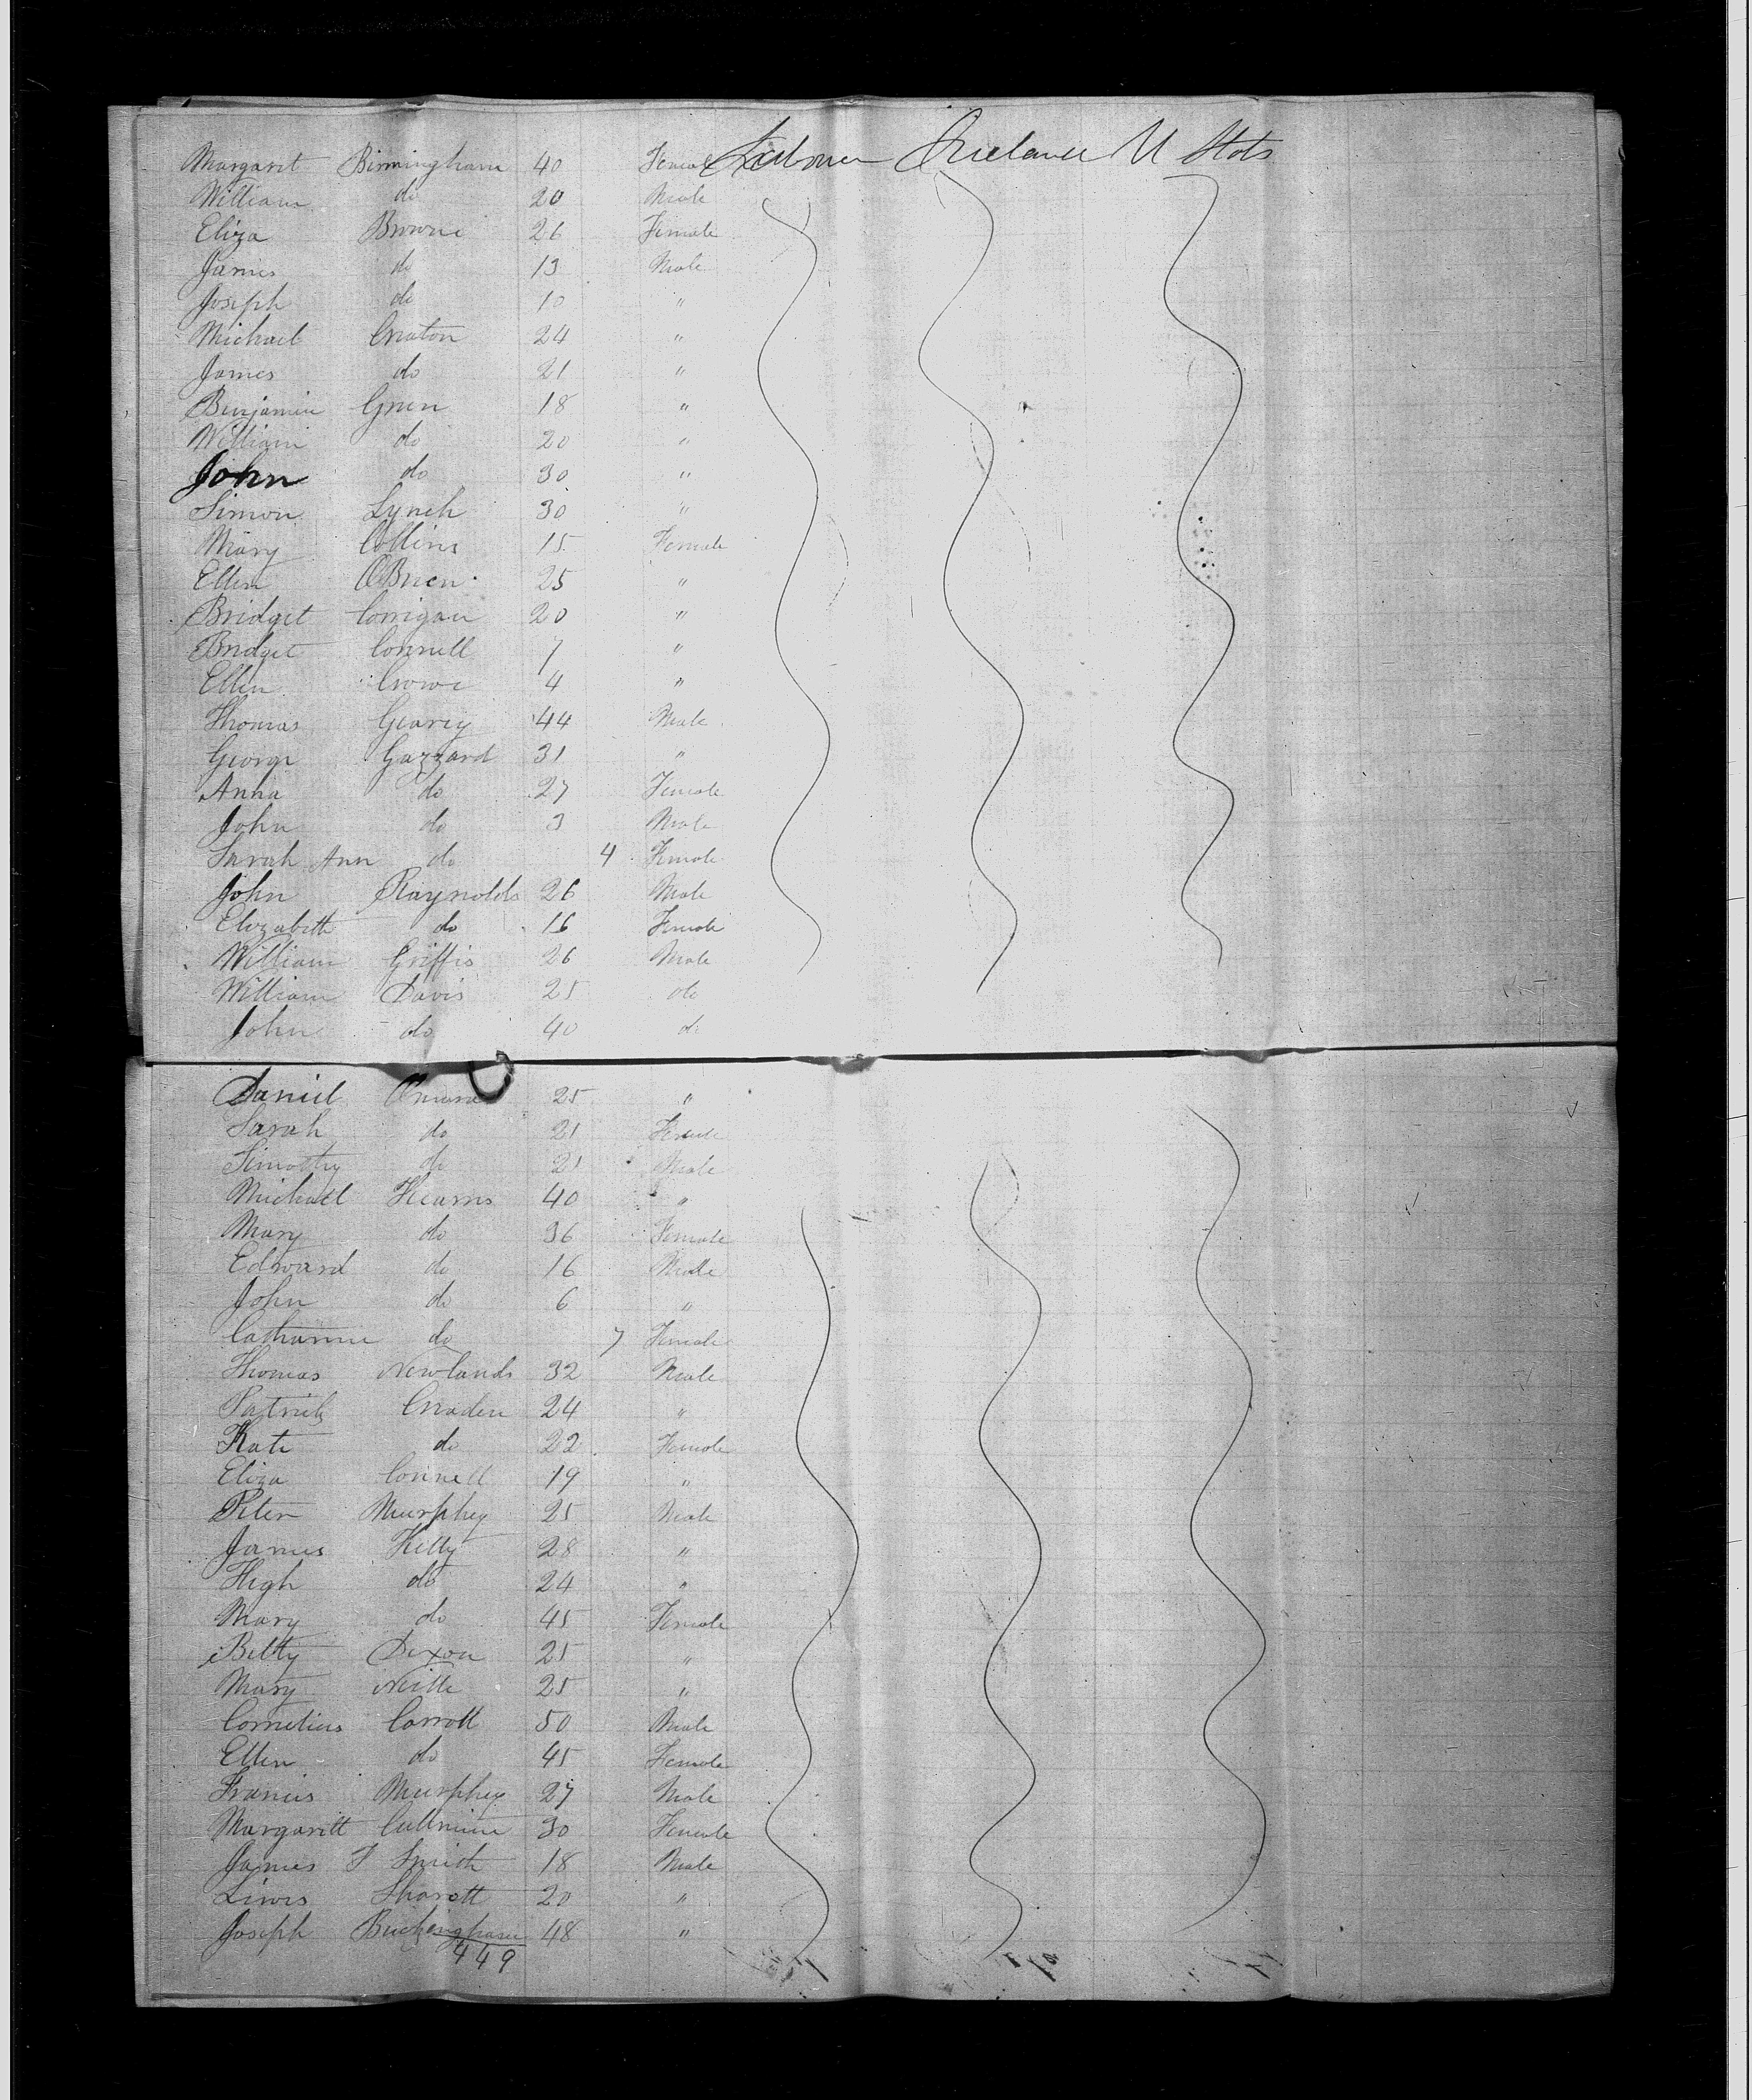 Margaret Birmingham 40 Female Labourer Ireland U Stats
William do 20 Male
Eliza Browne 26 Female
James do 13 Male
Joseph do 10 "
Michael Craton 24 "
James do 21 "
Benjamin Green 18 "
William do 20 "
John do 30 "
Simon Lynch 30 "
Mary Collins 15 Female
Ellen OBrien 25 "
Bridget Corrigan 20 "
Bridget Connell 7 "
Ellen Crowe 4 "
Thomas Gearey 44 Male
George Gazzard 31 "
Anna do 27 Female
John do 3 Male
Sarah Ann do 4 Female
John Raynolds 26 Male
Elizabeth do 16 Female
William Griffis 26 Male
William Davis 25 do
John do 40 do
Daniel 25 "
Sarah do 21 Female
Timothy do 21 Male
Michael Hearns 40 "
Mary do 36 Female
Edward do 16 Male
John do 6 "
Catharine do 7 Female
Thomas Newlands 32 Male
Patrick Craden 24 "
Kate do 22 Female
Eliza Connell 19 "
Peter Murphey 25 Male
James Kelly 28 "
High do 24 "
Mary do 45 Female
Betty Dixon 25 "
Mary 25 "
Cornelius Carroll 50 Male
Ellen do 45 Female
Francis Murphey 27 Male
Margarett 30 Female
James T Smith 18 Male
Lewis Sharott 20 "
Joseph Buckingham 48 "
449